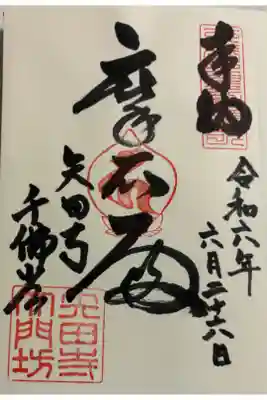 奉納
令和六年
六月二十六日
矢田寺
千佛堂
矢田寺
大門坊